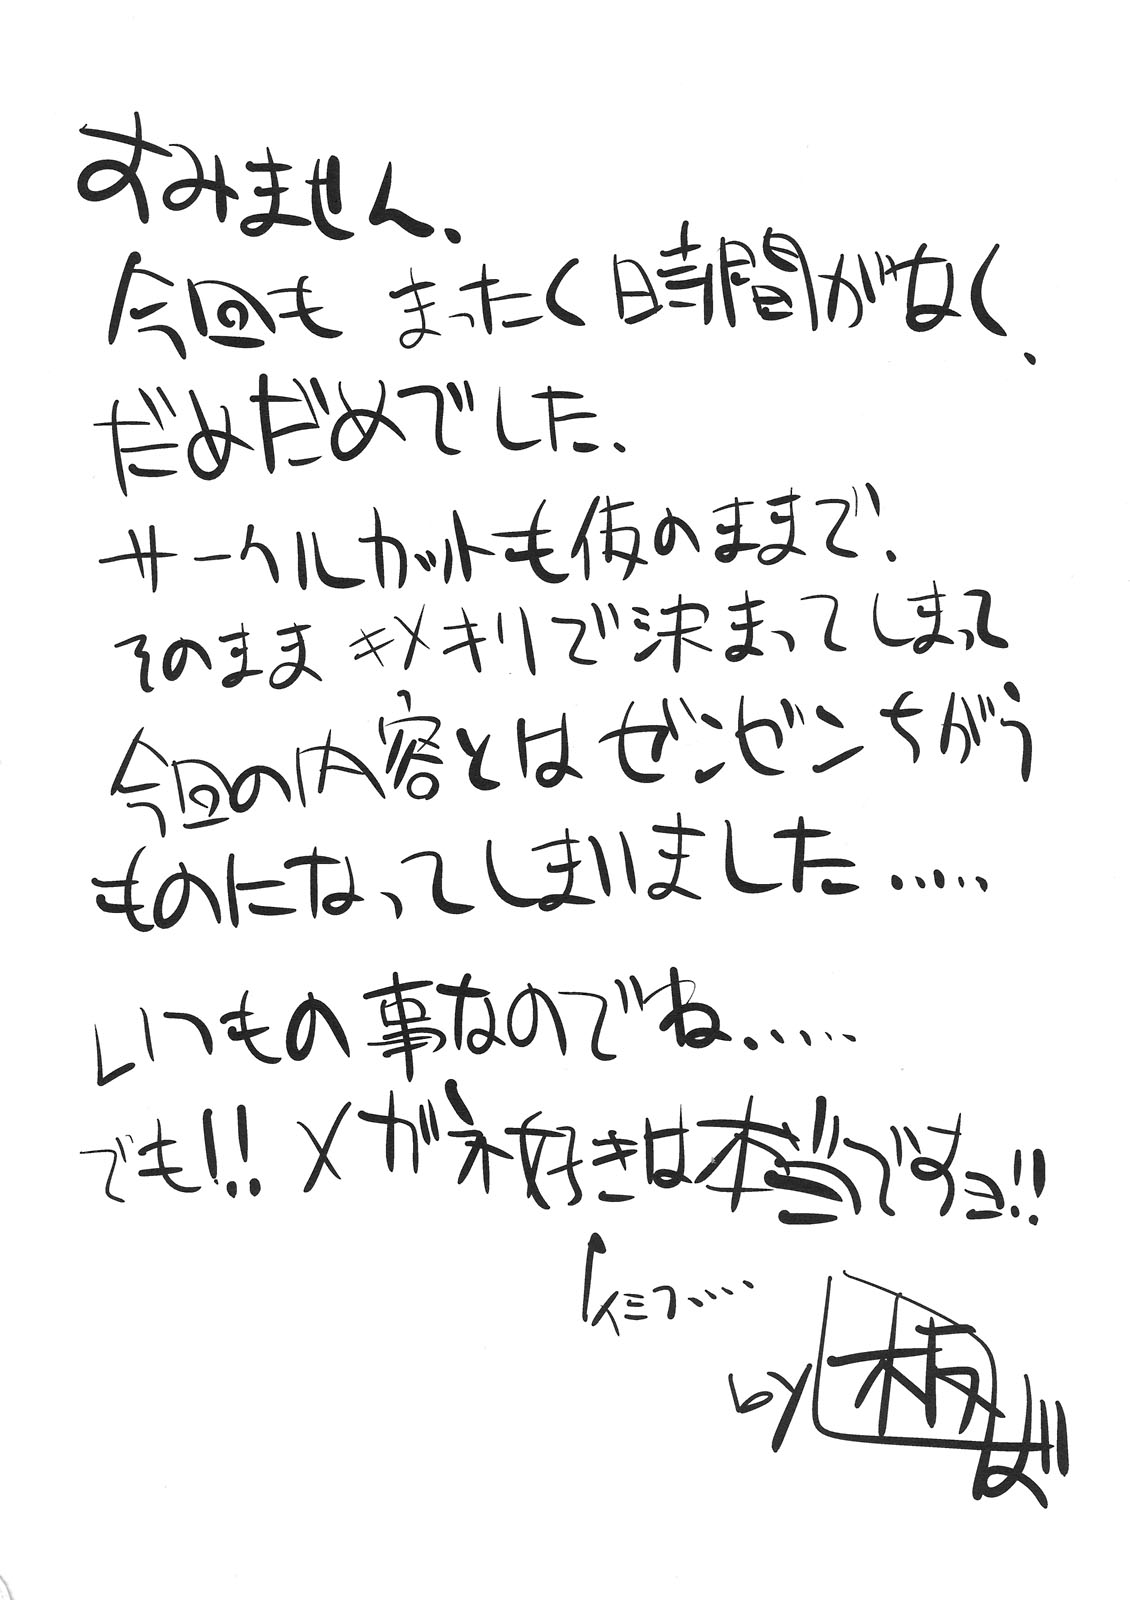 すみません.
今回も まったく時間がなく、
だめだめでした、
サークルカットも仮のままで、
そのまま キメキリで決まってしまって
今回の内容とは ゼンゼンちがう
ものになってしまいました.....
いつもの事なのでね.....
でも!! メガネ好きは本当ですョ!!
↑イミフ....
by 板ば